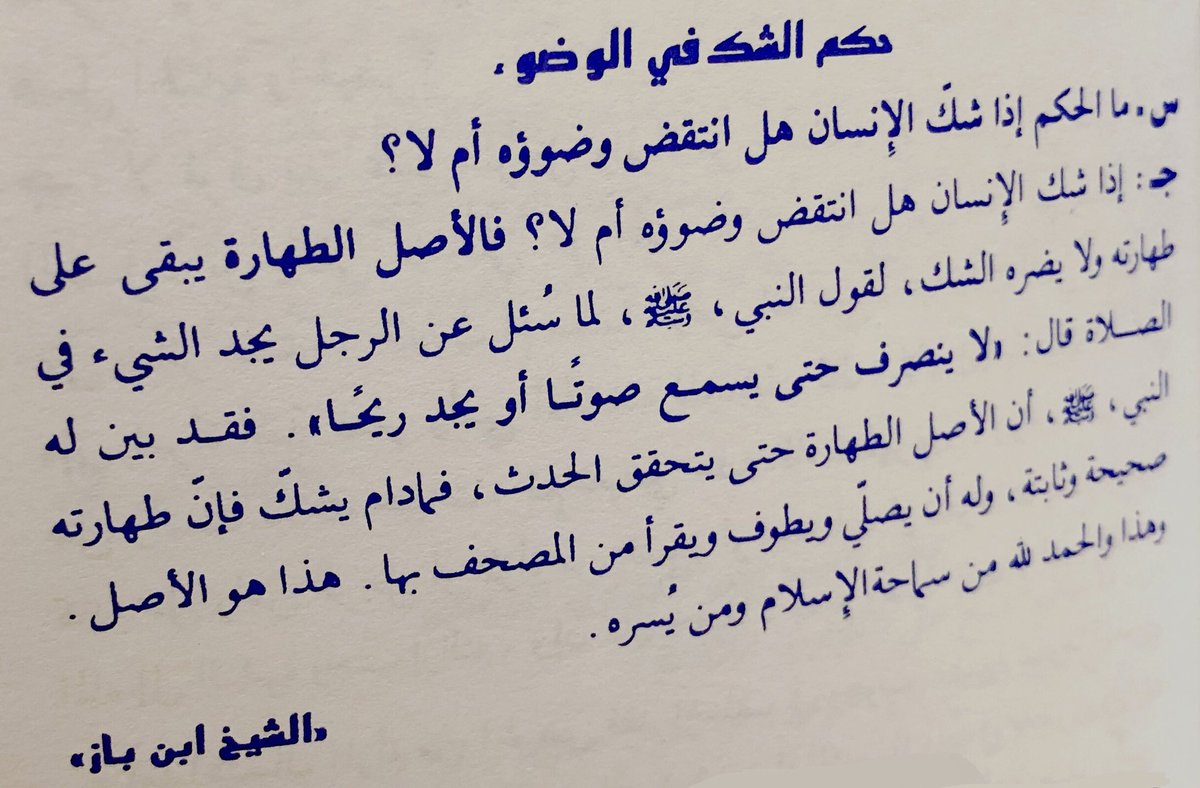 حكم الشك في الوضوء
س. ما الحكم إذا شكّ الإِنسان هل انتقض وضوؤه أم لا؟
جـ: إذا شك الإِنسان هل انتقض وضوؤه أم لا؟ فالأصل الطهارة يبقى على
طهارته ولا يضره الشك، لقول النبي، ﷺ، لما سُئل عن الرجل يجد الشيء في
الصلاة قال: «لا ينصرف حتى يسمع صوتًا أو يجد ريحًا». فقد بين له
النبي، ﷺ، أن الأصل الطهارة حتى يتحقق الحدث، فمادام يشكّ فإنّ طهارته
صحيحة وثابتة، وله أن يصلّي ويطوف ويقرأ من المصحف بها. هذا هو الأصل.
وهذا والحمد لله من سماحة الإِسلام ومن يُسره.
«الشيخ ابن باز»